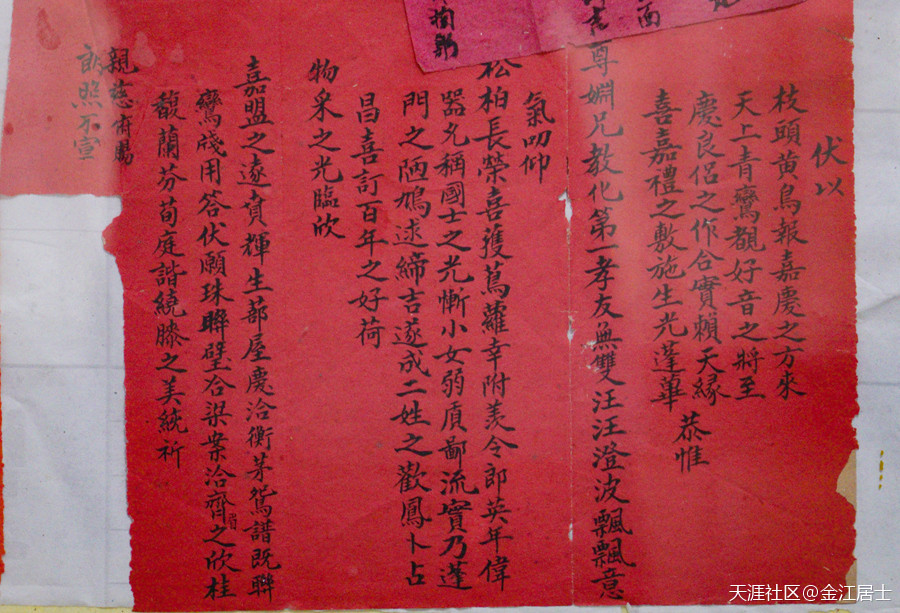 伏以
枝頭黄鳥報嘉慶之方來
天上青鸞覩好音之將至
慶良侣之作合實賴天緣
喜嘉禮之敷施生光蓬蓽
恭惟
尊姻兄教化第一孝友無雙汪汪澄波飄飄意
氣叨仰
松柏長榮喜獲蔦蘿幸附羨令郎英年偉
器久稱國士之光慚小女弱質鄙流實乃蓬
門之陋鳩逑締吉遂成二姓之歡鳳卜占
昌喜訂百年之好荷
物采之光臨欣
嘉盟之遂賁輝生蔀屋慶洽衡茅鴛譜既聯
鸞牋用答伏願珠聯璧合梁案洽齊眉之欣桂
馥蘭芬荀庭諧繞膝之美統祈
親慈俯賜
朗照不宣
天涯社区@金江居士